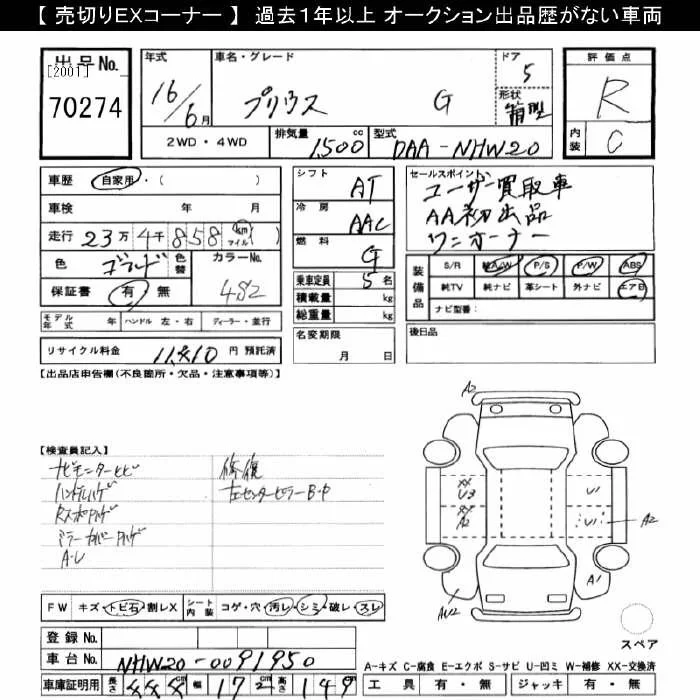 【 売切りEXコーナー 】 過去1年以上 オークション出品歴がない車両
出品No.
[2001]
70274
年式
16/6月
車名・グレード
プリウス G
ドア
5
形状
箱型
評価点
R
内装
C
2WD・4WD
排気量 1500 cc
型式 DAA-NHW20
車歴 自家用・( )
車検 年 月
走行 23万4千858 km マイル ( )
色 ゴールド
色替
カラーNo. 4S2
保証書 有・無
モデル年式 年
ハンドル 左・右
ディーラー・並行
リサイクル料金 11,810 円 預託済
シフト AT
冷房 AAC
燃料 G
乗車定員 5 名
積載量 kg
総重量 kg
名変期限
月 日
セールスポイント
ユーザー買取車
AA初出品
ワンオーナー
装備品
S/R 純A/W P/S P/W ABS
純TV 純ナビ 革シート 外ナビ エアB
ナビ型番:
後日品
【出品店申告欄(不良箇所・欠品・注意事項等)】
【検査員記入】
ナビモニターヒビ
ハンドルハゲ
Rスポハゲ
ミラーカバーハゲ
A・U
修復
左センターピラーB・P
A2
XX
U3
XX
A2
U1
U1
A2
A1
AU2
スペア
FW キズ・トビ石・割レX
シート内装 コゲ・穴・汚レ・シミ・破レ・スレ
登録No.
車台No. NHW20-0091950
車庫証明用 長さ 444 幅 172 高さ 149
A-キズ C-腐食 E-エクボ S-サビ U-凹ミ W-補修 XX-交換済
工具 有・無 ジャッキ 有・無